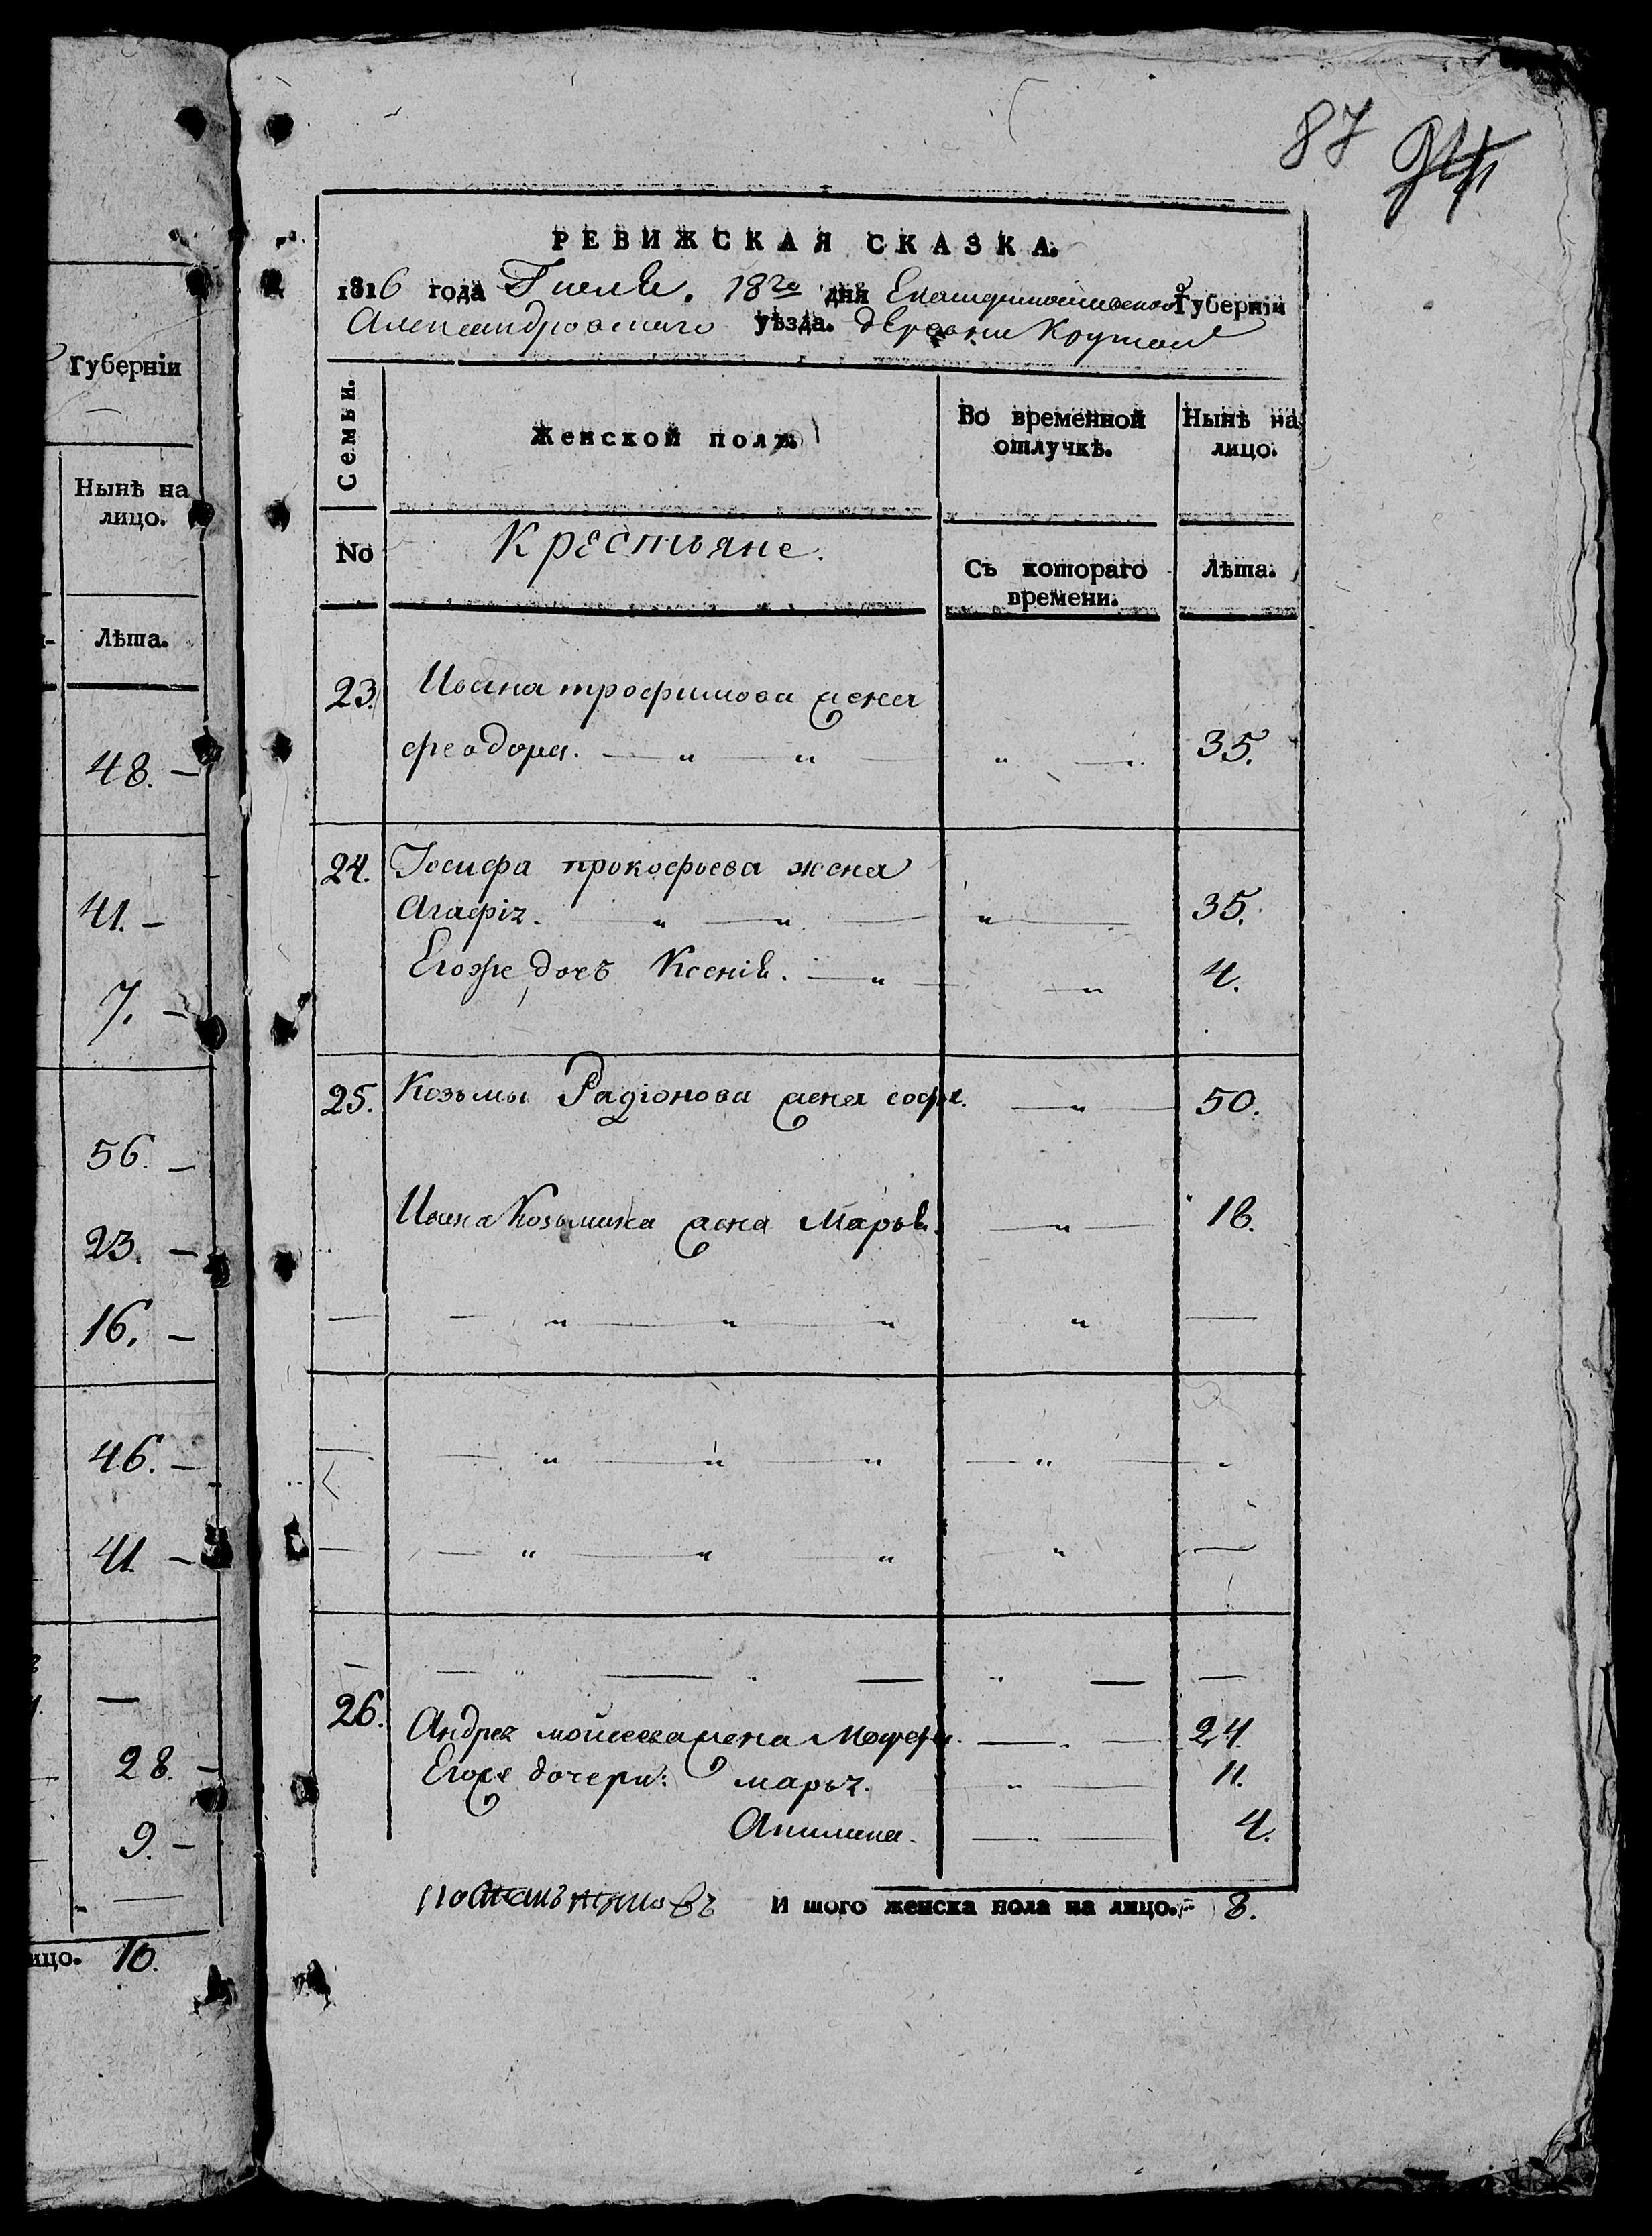 87
РЕВИЖСКАЯ СКАЗКА.
1816 года Июля. 18го дня Екатеринославской Губернїи
Александровскаго уѣзда. деревни Крутой
Семьи.
Женской полъ.
Во временной отлучкѣ.
Нынѣ на лицо.
No
Крестьяне.
Съ котораго времени.
Лѣта.
23. Ивана трофимова жена
феодора. 35.
24. Іосифа прокофьева жена
Агафія. 35.
Егоже дочь Ксенія. 4.
25. Козьмы Радіонова жена софя. 50.
Ивана Козьмина жена Марья. 18.
26. Андрея мойсеева жена 24
Егоже дочери: марья. 11.
4.
И того женска пола на лицо. 8.
Губернїи
Нынѣ на
лицо.
Лѣта.
48.
41.
7.
56.
23.
16.
46.
41
28.
9.
ицо. 10.